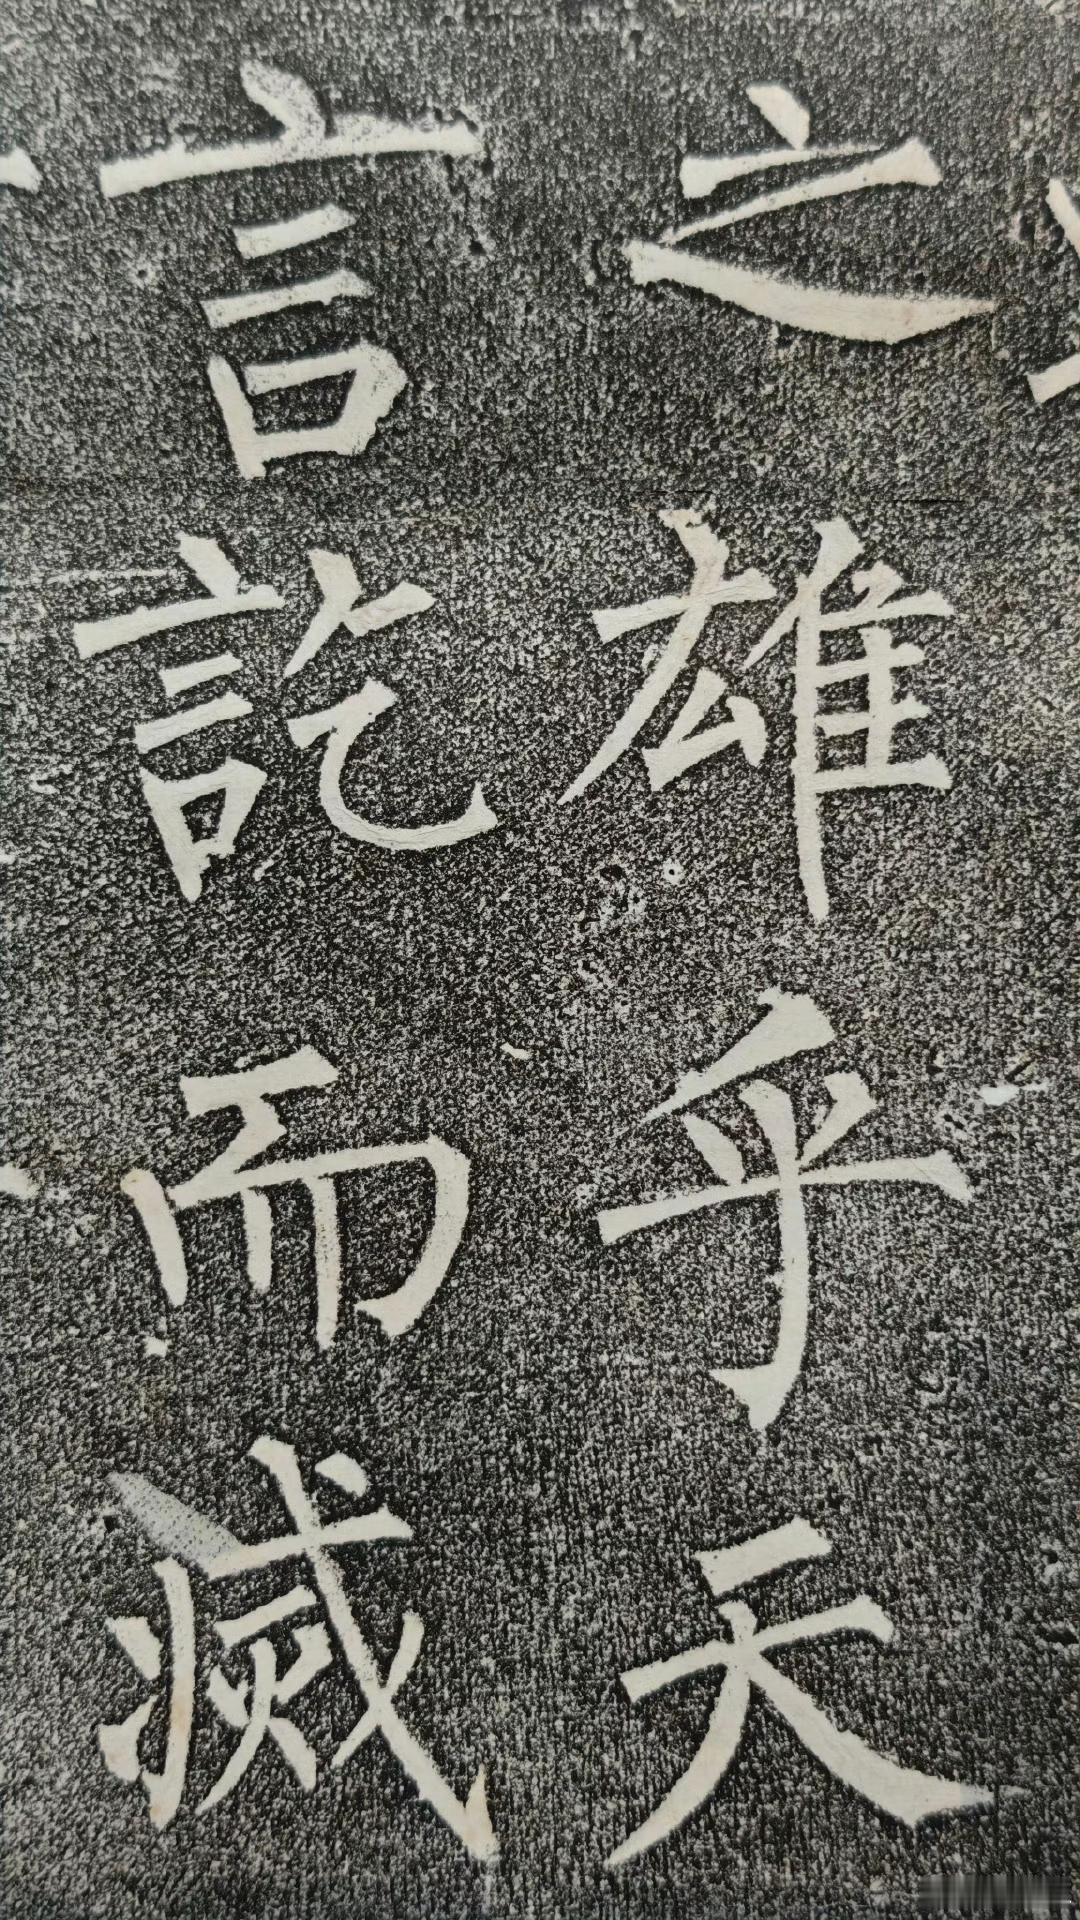 之雄乎天
言訖而滅